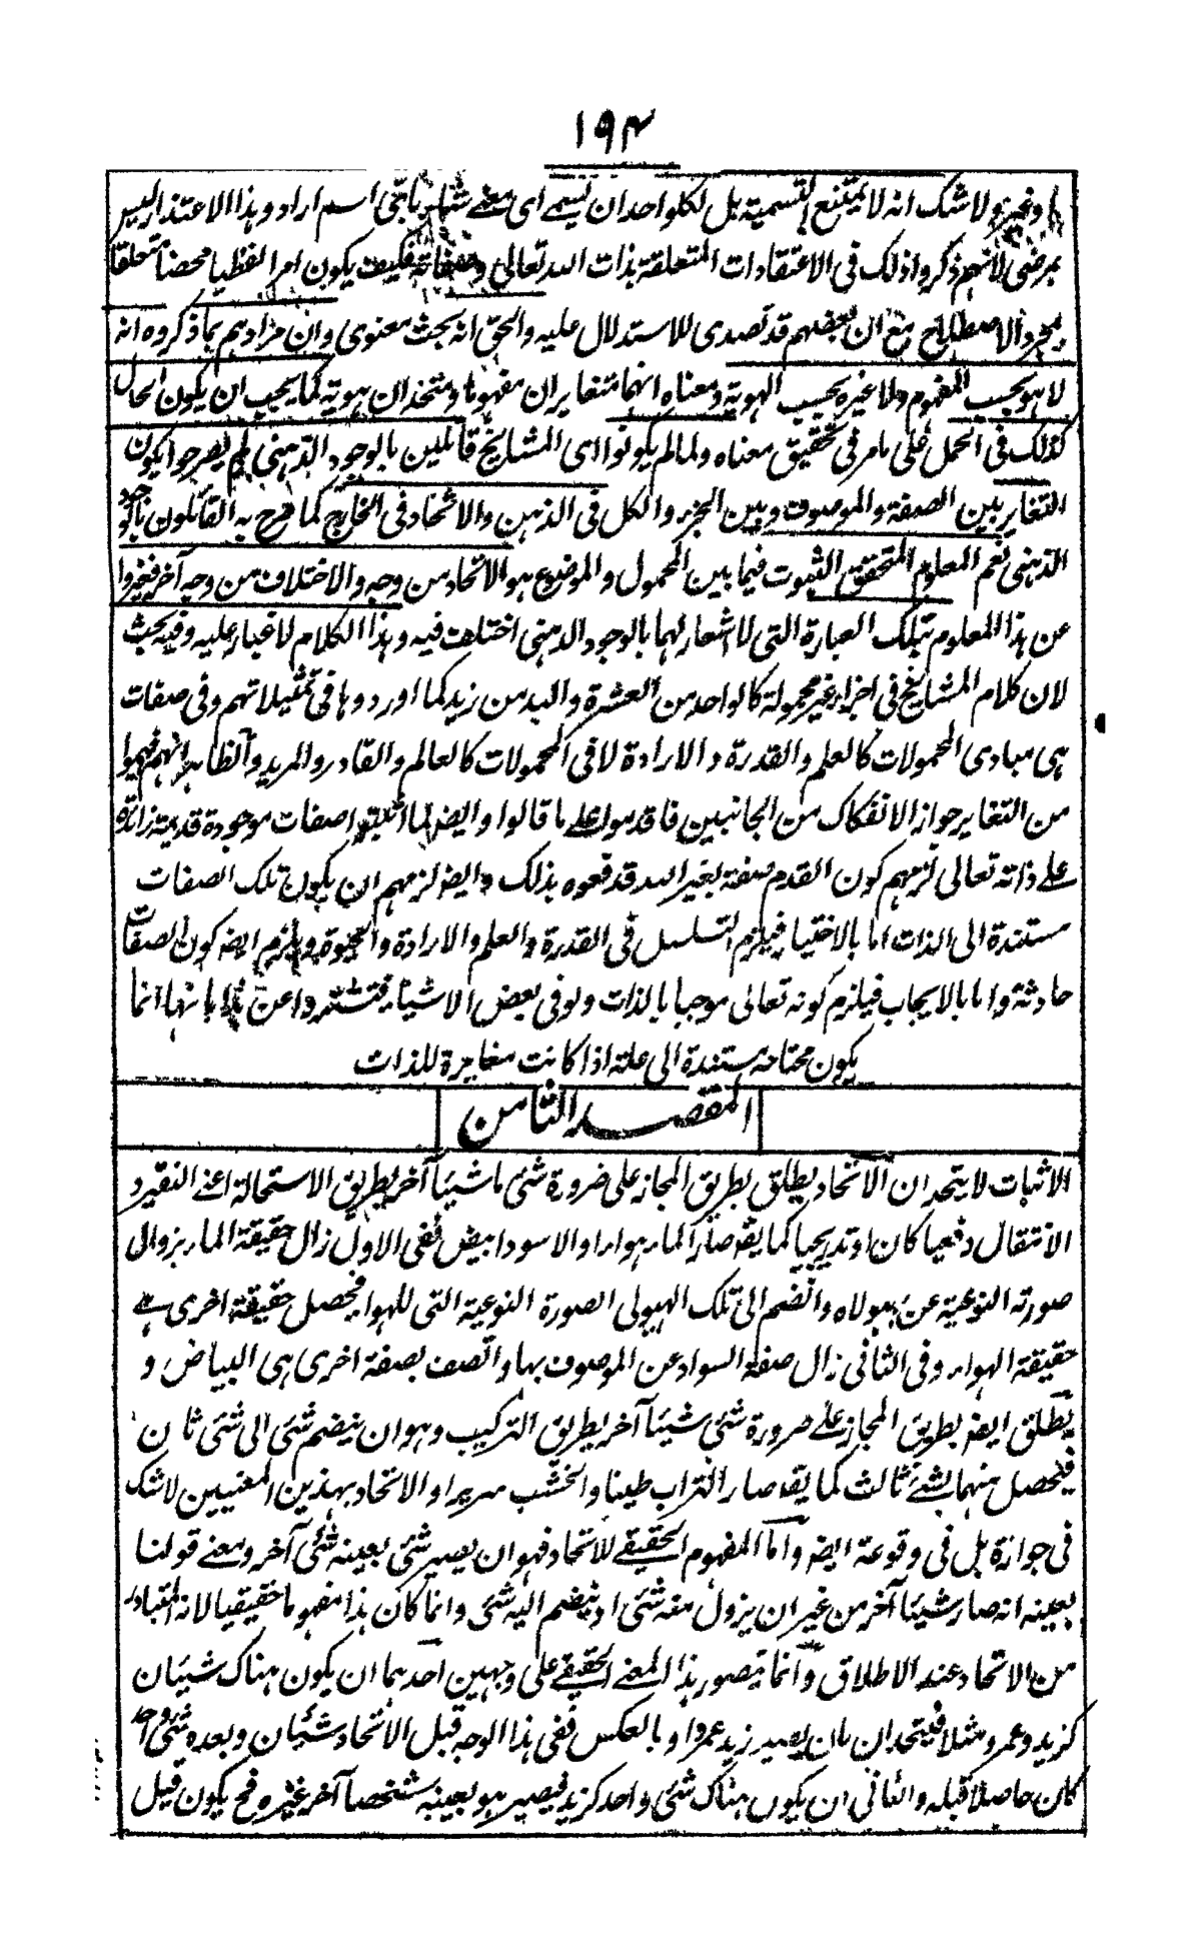 ١٩٤
او غيره ولا شك انه لا يمتنع التسمية بل لكل واحد ان يسمى اى معنى شاء باى اسم اراد وهذا الاعتذار ليس
بمرضى لانهم ذكروا ذلك فى الاعتقادات المتعلقة بذات الله تعالى وصفاته فكيف يكون امرا لفظيا محضا متعلقا
بمجرد الاصطلاح مع ان بعضهم قد تصدى للاستدلال عليه والحق انه بحث معنوى وان مرادهم بما ذكروه انه
لا هو بحسب المفهوم ولا غيره بحسب الهوية ومعناه انهما متغايران مفهوما ومتحدان هوية كما يجب ان يكون الحال
كذلك فى الحمل على ما مر فى تحقيق معناه ولما لم يكونوا اى المشايخ قائلين بالوجود الذهنى لم يصرحوا بكون
التغاير بين الصفة والموصوف وبين الجزء والكل فى الذهن والاتحاد فى الخارج كما صرح به القائلون بالوجود
الذهنى نعم المعلوم المتحقق الثبوت فيما بين المحمول والموضوع هو الاتحاد من وجه والاختلاف من وجه آخر فعبروا
عن هذا المعلوم بتلك العبارة التى لا اشعار لها بالوجود الذهنى اختلف فيه وهذا الكلام لا غبار عليه وفيه بحث
لان كلام المشايخ فى اجزاء غير محمولة كالواحد من العشرة واليد من زيد كما اوردوها فى تمثيلاتهم وفى صفات
هى مبادى المحمولات كالعلم والقدرة والارادة لا فى المحمولات كالعالم والقادر والمريد والظاهر انهم فهموا
من التغاير جواز الانفكاك من الجانبين فاقدموا على ما قالوا وايضا لما اثبتوا صفات موجودة قديمة زائدة
على ذاته تعالى لزمهم كون القدم صفة لغير الله فدفعوه بذلك وايضا لزمهم ان يكون تلك الصفات
مستندة الى الذات اما بالاختيار فيلزم التسلسل فى القدرة والعلم والارادة والحيوة ويلزم ايضا كون الصفات
حادثة واما بالايجاب فيلزم كونه تعالى موجبا بالذات ولو فى بعض الاشياء فتستروا عن هذا بانها انما
يكون محتاجة مستندة الى علة اذا كانت مغايرة للذات
المقصد الثامن
الاثبات لا يتحدان الاتحاد يطلق بطريق المجاز على ضرورة شئ ما شيئا آخر بطريق الاستحالة اعنى التغير و
الانتقال دفعيا كان او تدريجيا كما يقه صار الماء هواء او الاسود ابيض ففى الاول زال حقيقة الماء بزوال
صورته النوعية عن هيولاه وانضم الى تلك الهيولى الصورة النوعية التى للهواء فيحصل حقيقة اخرى هى
حقيقة الهواء وفى الثانى زال صفة السواد عن الموصوف بها واتصف بصفة اخرى هى البياض و
يطلق ايضا بطريق المجاز على ضرورة شئ شيئا آخر بطريق التركيب وهو ان ينضم شئ الى شئ ثان
فيحصل منهما شئ ثالث كما يقه صار التراب طينا والخشب سريرا والاتحاد بهذين المعنيين لا شك
فى جوازة بل فى وقوعة ايضا واما المفهوم الحقيقے للاتحاد فهو ان يصير شئ بعينه شئ آخر ومعنى قولنا
بعينه انه صار شيئا آخر من غير ان يزول منه شئ او ينضم اليه شئ وانما كان هذا مفهوما حقيقيا لانه المتبادر
من الاتحاد عند الاطلاق وانما يتصور هذا المعنى الحقيقے على وجهين احدهما ان يكون هناك شيئان
كزيد وعمرو مثلا فيتحدان بان يصير زيد عمروا وبالعكس ففى هذا الوجه قبل الاتحاد شيئان وبعده شئ واحد
كان حاصلا قبله والثانى ان يكون هناك شئ واحد كزيد فيصير هو بعينه شخصا آخر غيره فح يكون قبل